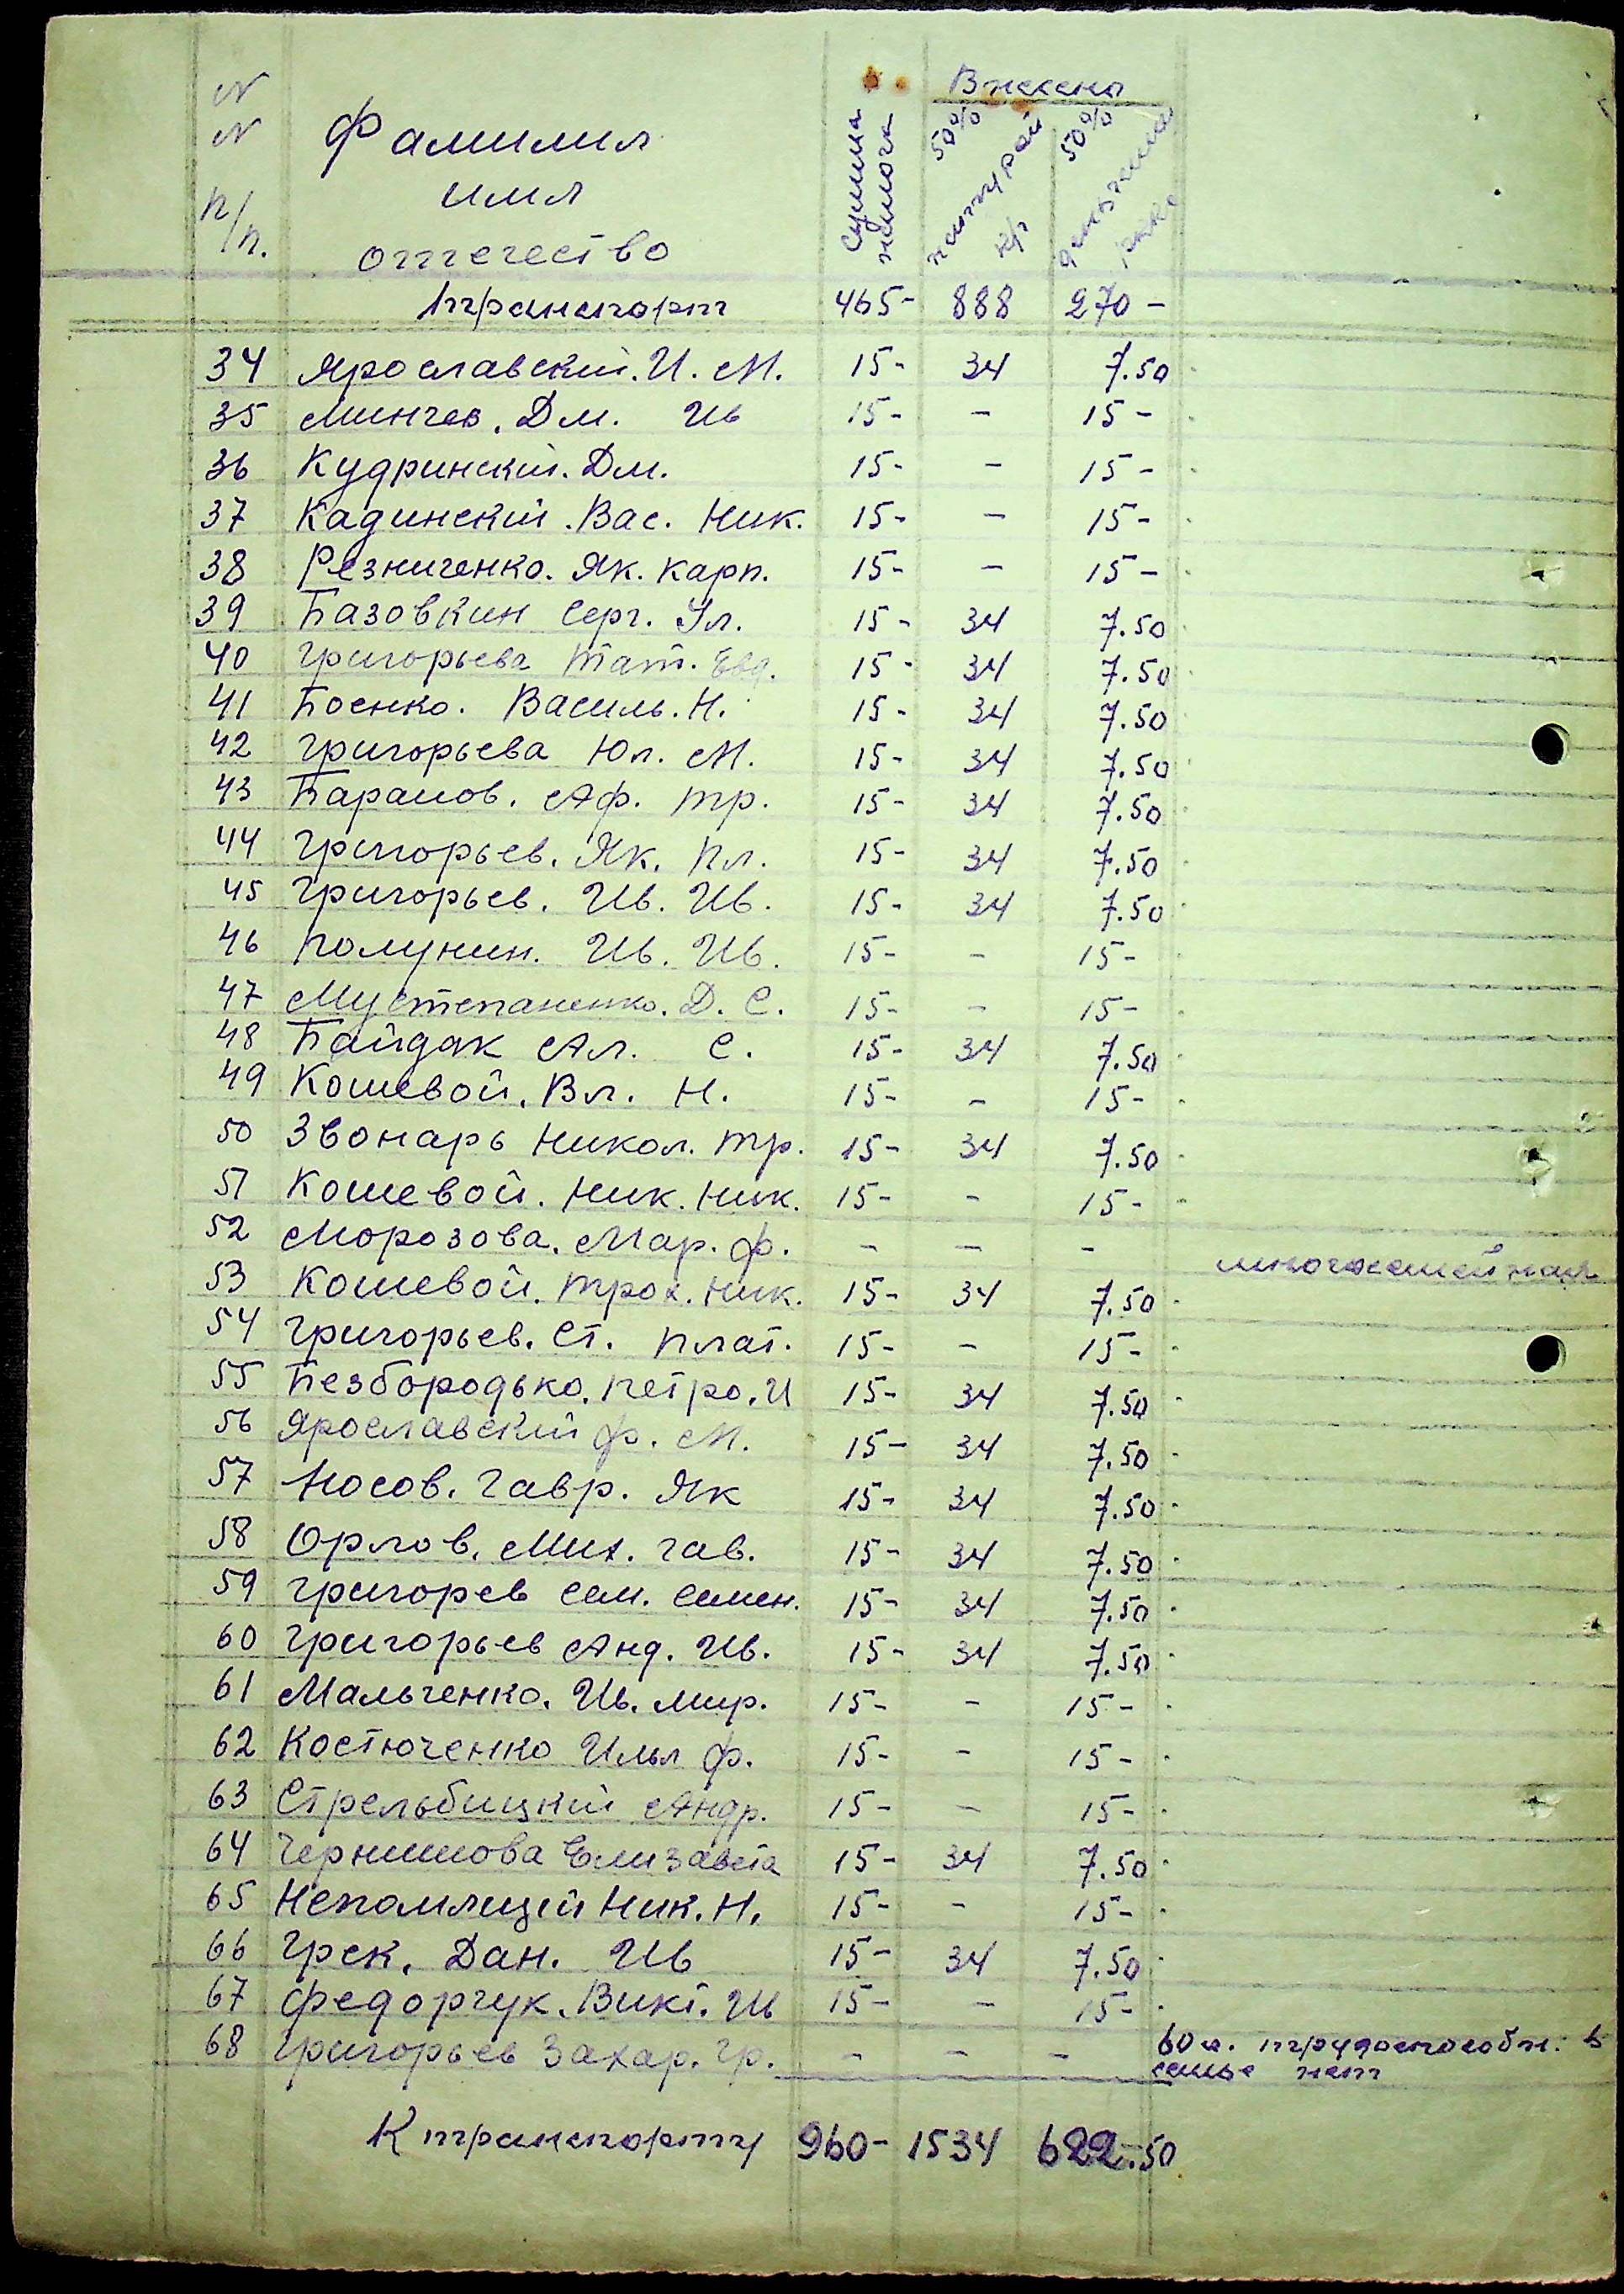 N N п/п. Фамилия имя отчество Сумма налога Внесено 50% натурой кр 50% деньгами
Транспорт 465- 888 270-
34 Ярославский. И. М. 15- 34 7.50
35 Минчев. Дм. Ив 15- - 15-
36 Кудринский. Дм. 15- - 15-
37 Кадинский. Вас. Ник. 15- - 15-
38 Резниченко. Як. Карп. 15- - 15-
39 Базовкин Серг. Ул. 15- 34 7.50
40 Григорьева Тат. Евд. 15- 34 7.50
41 Боенко. Василь. Н. 15- 34 7.50
42 Григорьева Юл. М. 15- 34 7.50
43 Баранов. Аф. Тр. 15- 34 7.50
44 Григорьев. Як. Пл. 15- 34 7.50
45 Григорьев. Ив. Ив. 15- 34 7.50
46 Полунин. Ив. Ив. 15- - 15-
47 Мустепаненко. Д. С. 15- - 15-
48 Байдак Ал. С. 15- 34 7.50
49 Кошевой. Вл. Н. 15- - 15-
50 Звонарь Никол. Тр. 15- 34 7.50
51 Кошевой. Ник. Ник. 15- - 15-
52 Морозова. Мар. Ф. - - - многосемейная
53 Кошевой. Трох. Ник. 15- 34 7.50
54 Григорьев. Ст. Плат. 15- - 15-
55 Безбородько. Петро. И 15- 34 7.50
56 Ярославский Ф. М. 15- 34 7.50
57 Носов. Гавр. Як 15- 34 7.50
58 Орлов. Мих. Гав. 15- 34 7.50
59 Григорев Сем. Семен. 15- 34 7.50
60 Григорьев Анд. Ив. 15- 34 7.50
61 Мальченко. Ив. Мир. 15- - 15-
62 Костюченко Илья Ф. 15- - 15-
63 Стрельбицкий Андр. 15- - 15-
64 Чернишова Елизавета 15- 34 7.50
65 Непомлящей Ник. Н. 15- - 15-
66 Грек. Дан. Ив 15- 34 7.50
67 Федорчук. Викт. Ив 15- - 15-
68 Григорьев Захар. Гр. - - - 60 л. трудоспособн. в
семье нет
К транспорту 960- 1534 622.50